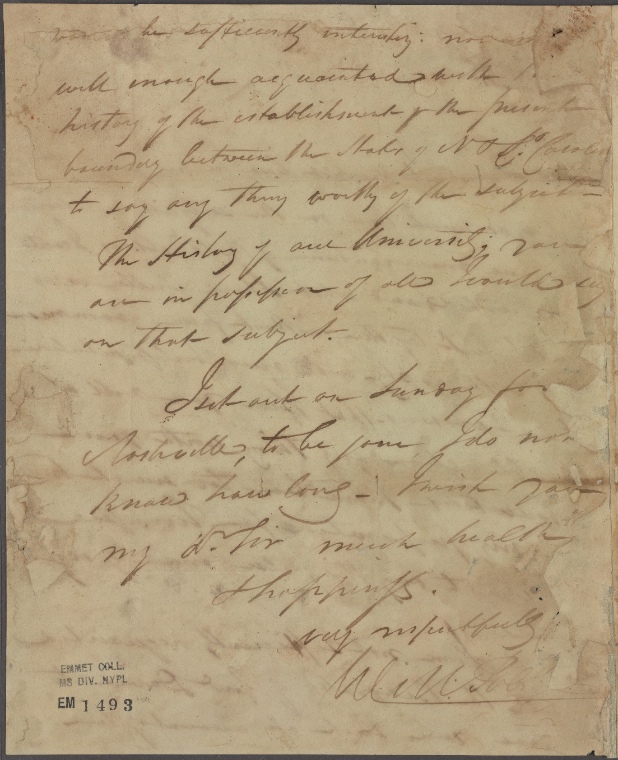 be sufficiently interesting: nor
well enough acquainted with
history of the establishment of the present
boundary between the States of N & So. Carolin
to say any thing worthy of the subject –
The History of our University, you
are in possession of all I could say
on that subject.
I set out on Sunday for
Nashville, to be gone, I do not
know how long – I wish you
my Dr. Sir much health
& happiness.
very respectfully
EMMET COLL.
MS DIV. NYPL
EM 1493